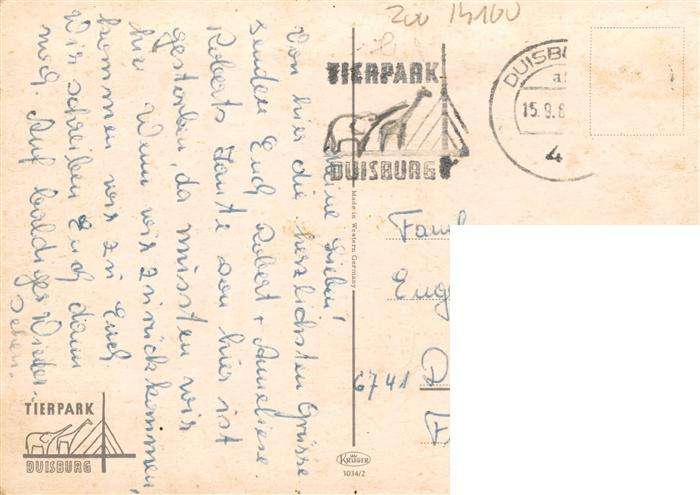 Zoo 14100
TIERPARK
DUISBURG
DUISB
15.9.6
4
Meine Lieben!
Von hier die herzlichsten Grüsse
senden Euch Robert + Anneliese.
Roberts Tante von hier ist
gestorben, da mussten wir
her. Wenn wir zurückkommen,
kommen wir zu Euch.
Wir schreiben Euch dann
noch. Auf baldiges Wieder-
sehen.
Made in Western Germany
Fam
Eug
6741 D
F
TIERPARK
DUISBURG
KRÜGER
1034/2